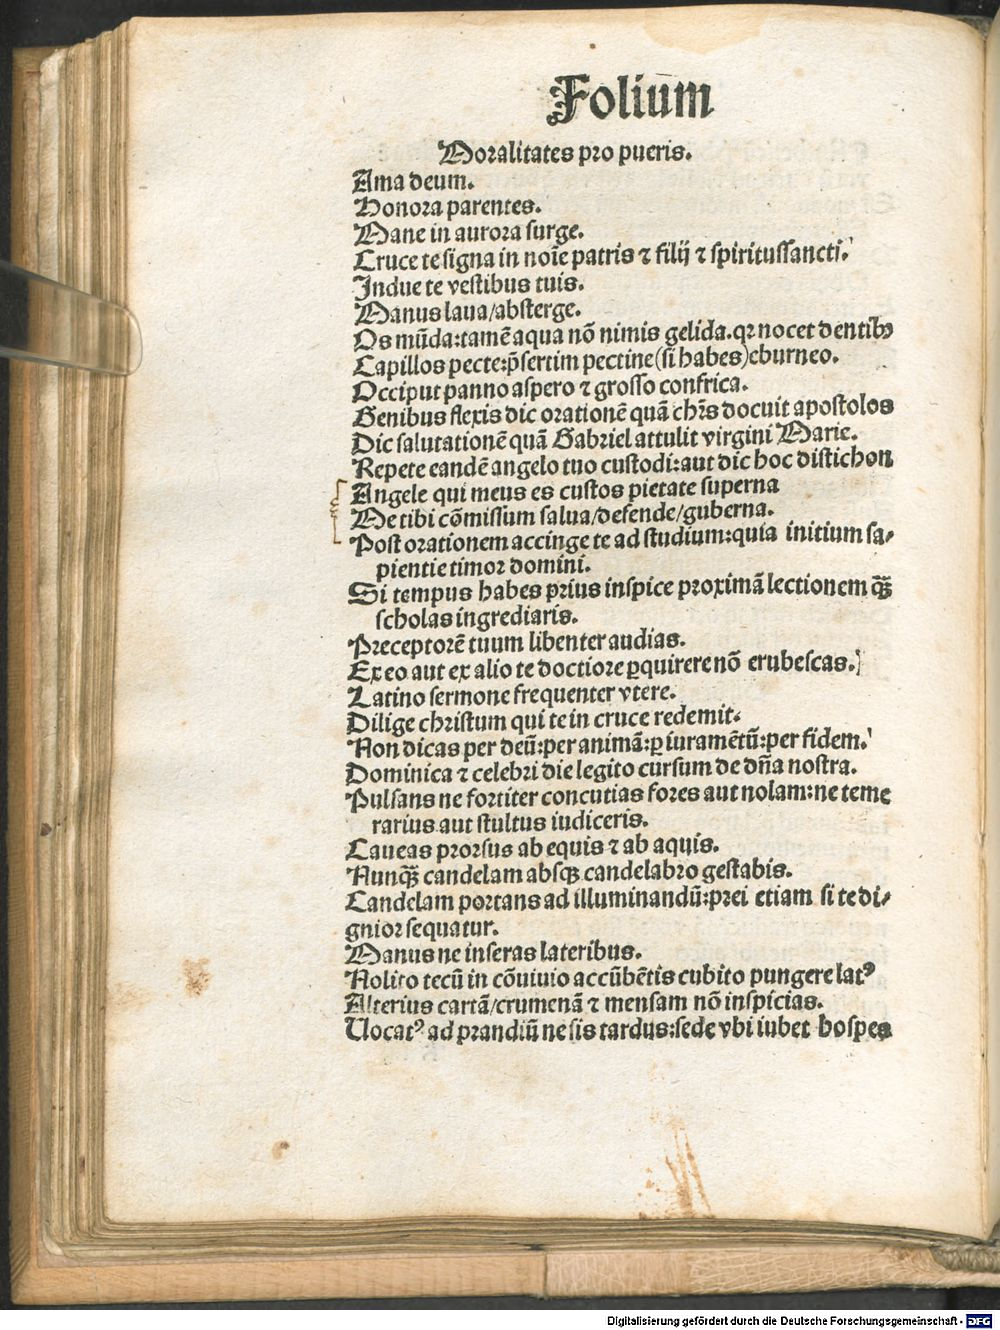 Folium
Moralitates pro pueris.
Ama deum.
Honora parentes.
Mane in aurora surge.
Cruce te signa in noīe patris ⁊ filij ⁊ spiritussancti.
Indue te vestibus tuis.
Manus laua/absterge.
Os mūda:tamē aqua nō nimis gelida.qꝛ nocet dentibꝰ
Capillos pecte:p̄sertim pectine(si habes)eburneo.
Occiput panno aspero ⁊ grosso confrica.
Genibus flexis dic orationē quā chr̄s docuit apostolos
Dic salutationē quā Gabriel attulit virgini Marie.
Repete eandē angelo tuo custodi:aut dic hoc distichon
Angele qui meus es custos pietate superna
Me tibi cōmissum salua/defende/guberna.
Post orationem accinge te ad studium:quia initium sa-
pientie timor domini.
Si tempus habes prius inspice proximā lectionem qꝫ̄
scholas ingrediaris.
Preceptorē tuum libenter audias.
Ex eo aut ex alio te doctiore ꝑquirere nō erubescas.
Latino sermone frequenter vtere.
Dilige christum qui te in cruce redemit.
Non dicas per deū:per animā:ꝑ iuramētū:per fidem.
Dominica ⁊ celebri die legito cursum de dn̄a nostra.
Pulsans ne fortiter concutias fores aut nolam:ne teme
rarius aut stultus iudiceris.
Caueas prorsus ab equis ⁊ ab aquis.
Nunqꝫ̄ candelam absqꝫ candelabro gestabis.
Candelam portans ad illuminandū:prei etiam si te di-
gnior sequatur.
Manus ne inseras lateribus.
Nolito tecū in cōuiuio accūbētis cubito pungere latꝰ
Alterius cartā/crumenā ⁊ mensam nō inspicias.
Uocatꝰ ad prandiū ne sis tardus:sede vbi iubet hospes
Digitalisierung gefördert durch die Deutsche Forschungsgemeinschaft - DFG